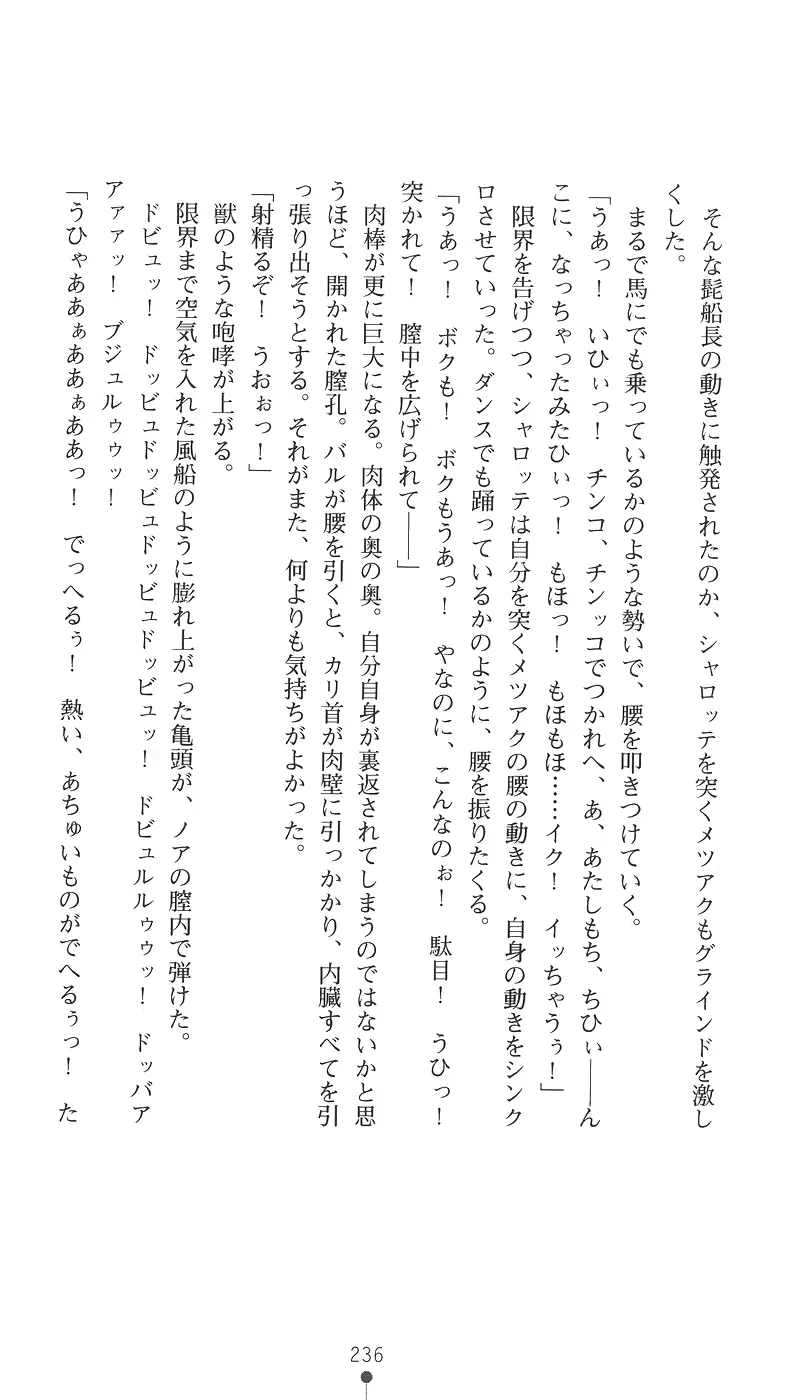 そんな髭船長の動きに触発されたのか、シャロッテを突くメツアクもグラインドを激し
くした。
まるで馬にでも乗っているかのような勢いで、腰を叩きつけていく。
「うあっ！　いひぃっ！　チンコ、チンッコでつかれへ、あ、あたしもち、ちひぃ――ん
こに、なっちゃったみたひぃっ！　もほっ！　もほもほ……イク！　イッちゃうぅ！」
限界を告げつつ、シャロッテは自分を突くメツアクの腰の動きに、自身の動きをシンク
ロさせていった。ダンスでも踊っているかのように、腰を振りたくる。
「うあっ！　ボクも！　ボクもうあっ！　やなのに、こんなのぉ！　駄目！　うひっ！
突かれて！　膣中を広げられて――」
肉棒が更に巨大になる。肉体の奥の奥。自分自身が裏返されてしまうのではないかと思
うほど、開かれた膣孔。バルが腰を引くと、カリ首が肉壁に引っかかり、内臓すべてを引
っ張り出そうとする。それがまた、何よりも気持ちがよかった。
「射精るぞ！　うおぉっ！」
獣のような咆哮が上がる。
限界まで空気を入れた風船のように膨れ上がった亀頭が、ノアの膣内で弾けた。
ドビュッ！　ドッビュドッビュドッビュドッビュッ！　ドビュルルゥゥッ！　ドッバア
アァァッ！　ブジュルゥゥッ！
「うひゃああぁああぁああっ！　でっへるぅ！　熱い、あちゅいものがでへるぅっ！　た
236